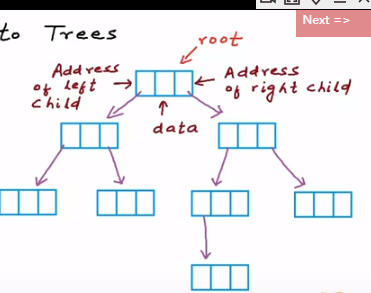 Next =>
to Trees
root
Address
of left
child
Address
of right child
data